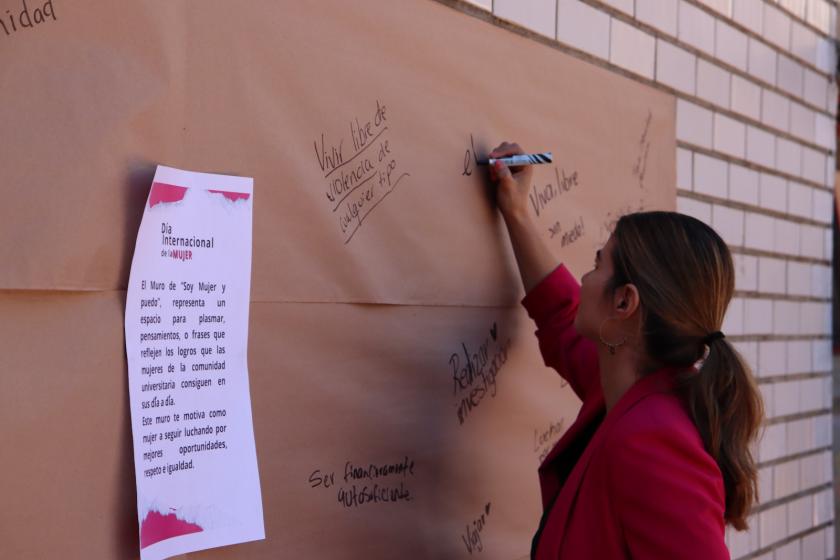 nidad
Vivir libre de
violencia de
cualquier tipo
el
Vivir libre
sin
miedo!
Día
Internacional
de la MUJER
El Muro de "Soy Mujer y
puedo", representa un
espacio para plasmar,
pensamientos, o frases que
reflejen los logros que las
mujeres de la comunidad
universitaria consiguen en
sus día a día.
Este muro te motiva como
mujer a seguir luchando por
mejores oportunidades,
respeto e igualdad.
Realizar
investigación
Luchar
Ser financieramente
autosuficiente.
Viajar